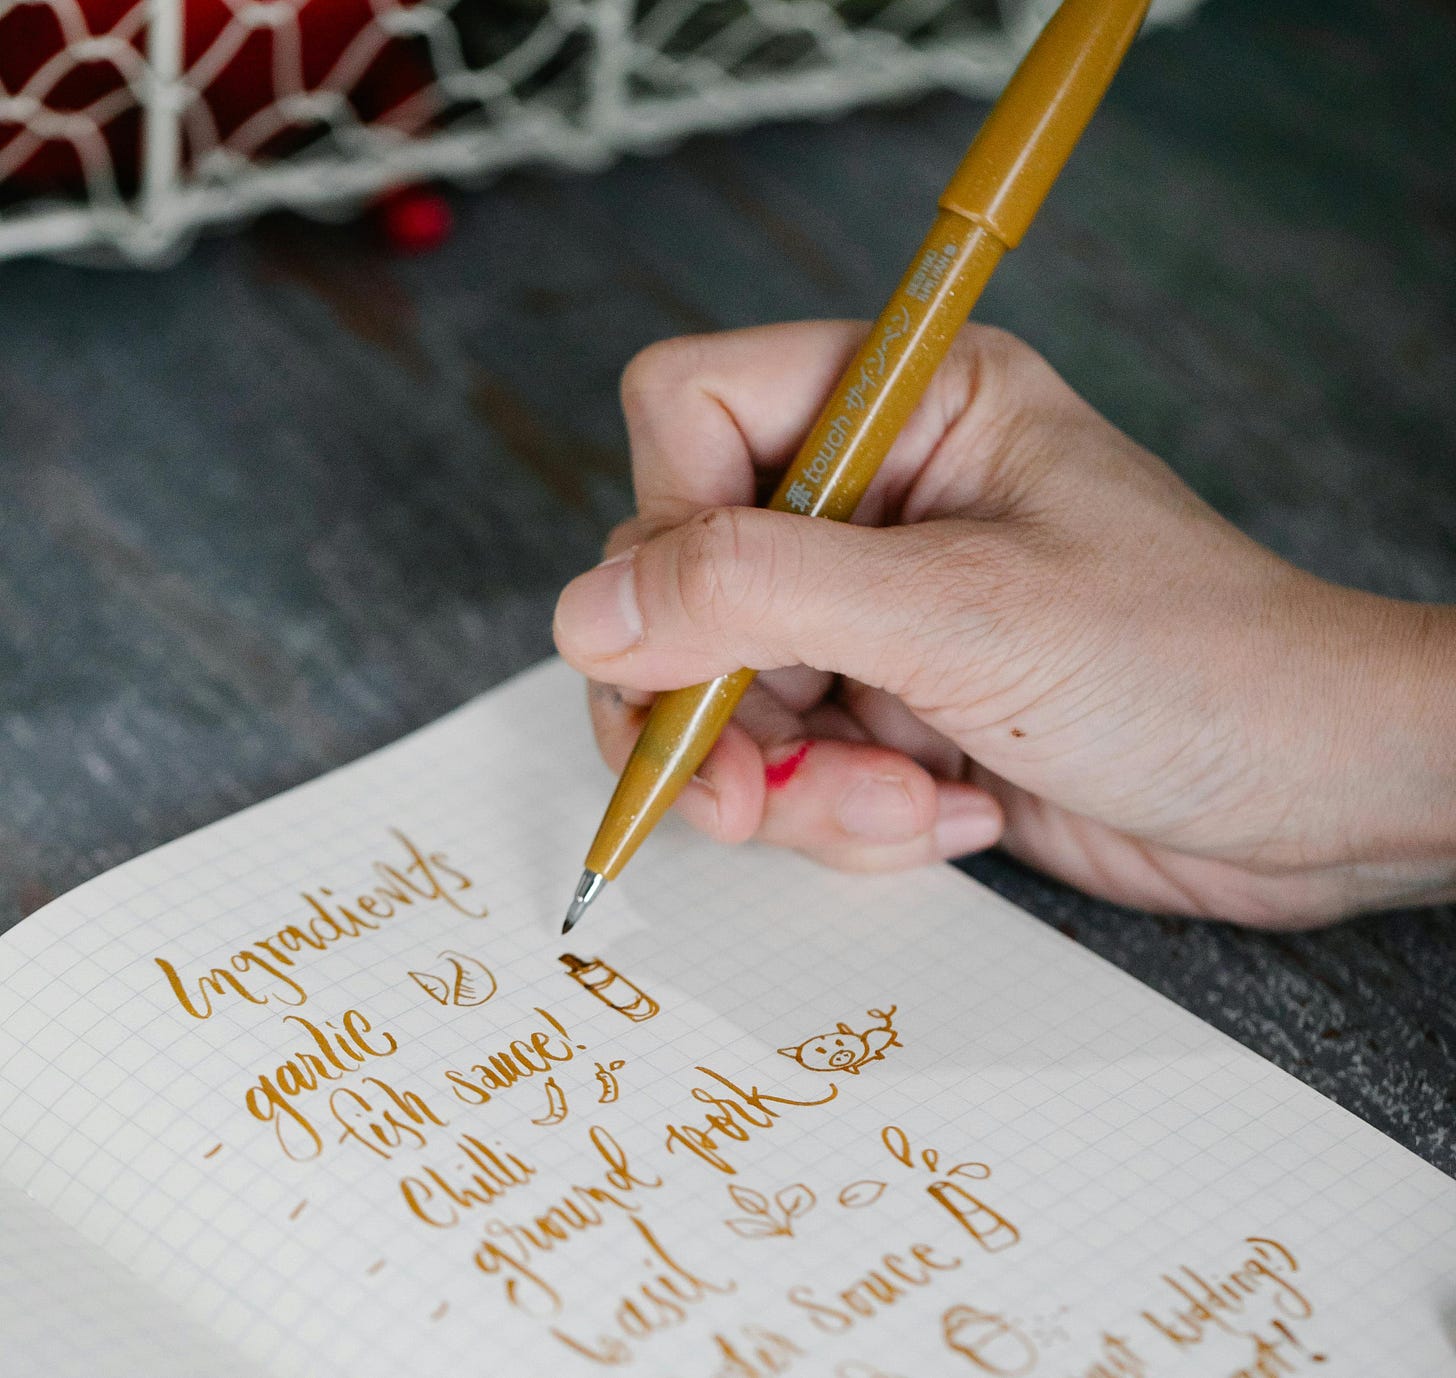 touch サインペン
Ingradients
- garlic
- fish sauce!
- Chilli
- ground pork
basil
Souce
kidding:)